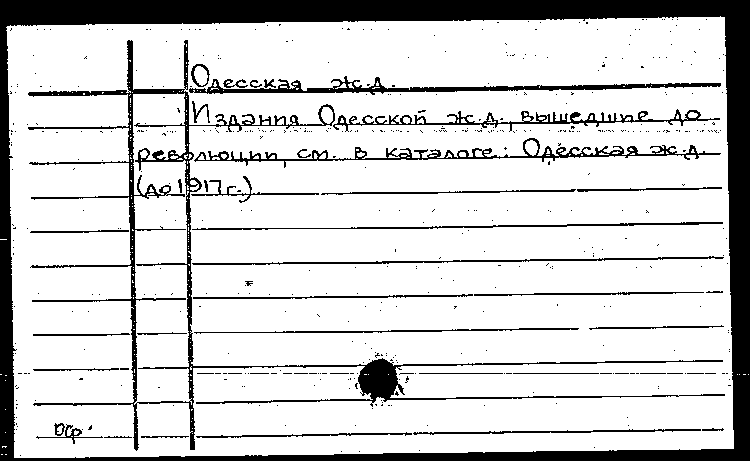 Одесская ж.д.
Издания Одесской ж.д., вышедшие до
революции, см. в каталоге: Одесская ж.д.
(до 1917 г.)